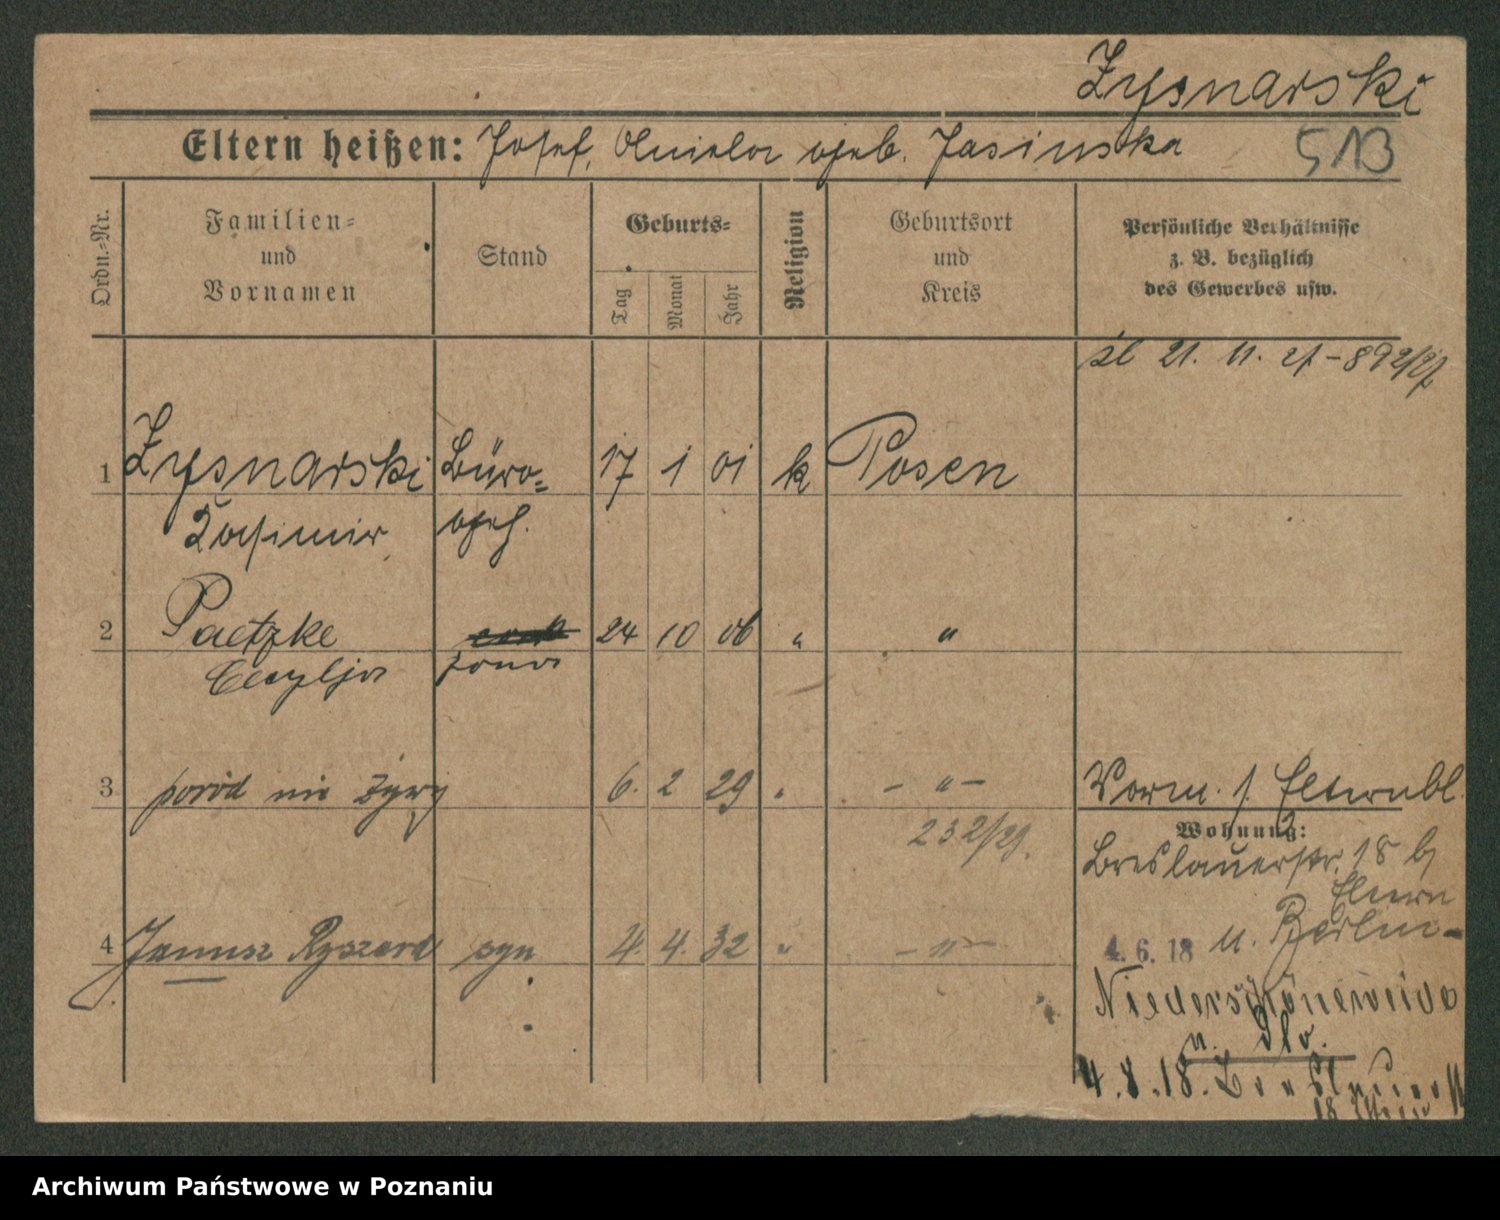 Zysnarski
Eltern heißen: Josef, Aniela geb. Jasinska
513
Ordn.-Nr.
Familien-
und
Vornamen
Stand
Geburts-
Tag
Monat
Jahr
Religion
Geburtsort
und
Kreis
Persönliche Verhältnisse
z. B. bezüglich
des Gewerbes usw.
śl 21. 11. 27 – 892/27
1 Zysnarski Büro- 17 1 01 k Posen
Kasimir geh.
2 Paetzke 24 10 06 " "
Cecylja żona
3 poród nie żywy 6. 2 29 " – " –
232/29.
Vorm. s. Elternbl.
Wohnung:
Breslauerstr. 18 b/
Eltern
4 Janusz Ryszard syn 4. 4. 32 " – " –
4. 6. 18 n. Berlin-
Niederschöneweide
4. 8. 18.
18
Archiwum Państwowe w Poznaniu